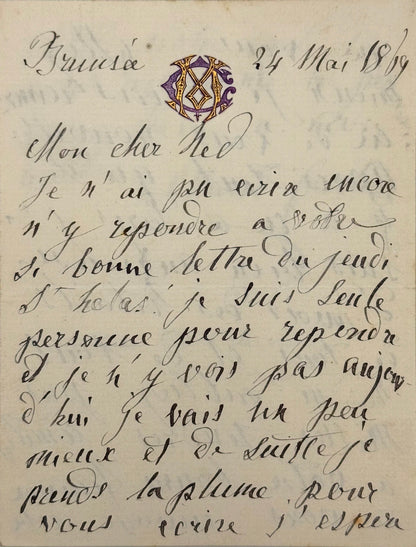 24 Mai
Mon cher Ned
Je n'ai pu ecrire encore
n'y repondre a votre
si bonne lettre du jeudi
St helas! je suis seule
personne pour rependre
et je n'y vois pas aujour
d'hui je vais un peu
mieux et de suitte je
prends la plume pour
vous ecrire j'espere